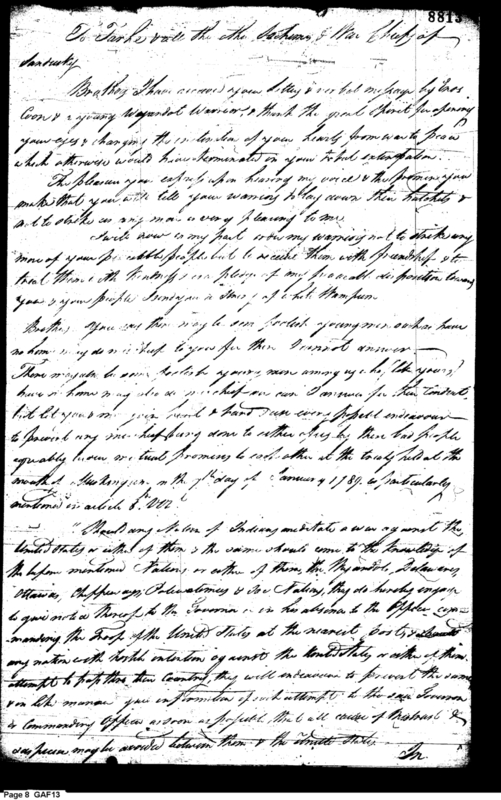 8813
To Tarhe & all the other Sachems & War Chiefs of
Sandusky
Brothers, I have received your letter & verbal message by
Coon & a young Wyandot Warrior, & thank the great Spirit for opening
your eyes & changing the intention of your hearts from war to peace
which otherwise would have terminated in your total extirpation.
The pleasure you express upon hearing my voice & the promise you
make that you will tell your warriors to lay down their hatchets &
not to strike any more is very pleasing to me.
I will now in my part order my warriors not to strike any
more of your peaceable people but to receive them with friendship & to
treat them with kindness as a pledge of my peaceable disposition towards
you & your people I send you a String of white Wampum
Brothers. You say there may be some foolish young men who have
no home may do mischief to you for them I cannot answer
There may also be some foolish young men among us who, like yours,
have no home may also do mischief nor can I answer for their Conduct
but let you & me join heart & hand & use every possible endeavour
to prevent any mischief being done to either of us by these bad people
agreeably to our mutual promises to each other at the treaty held at the
mouth of Muskingum on the 9th day of January 1789, as particularly
mentioned in article 8th Viz.
"Should any Nation of Indians meditate a war against the
United States or either of them & the same should come to the knowledge of
the before mentioned Nations or either of them, the Wyandots, Delawares,
Ottawas, Chippeways, Potawatomies & Sac Nations, they do hereby engage
to give notice thereof to the Governor or in his absence to the Officer com-
manding the Troops of the United States at the nearest Post, & should
any nation with hostile intention against the United States or either of them
attempt to pass thro their Country, they will endeavour to prevent the same
& in like manner give information of such attempt to the said Governor
or Commanding Officer as soon as possible, that all cause of Mistrust &
suspicion may be avoided between them & the United States.
In
Page 8 GAF13